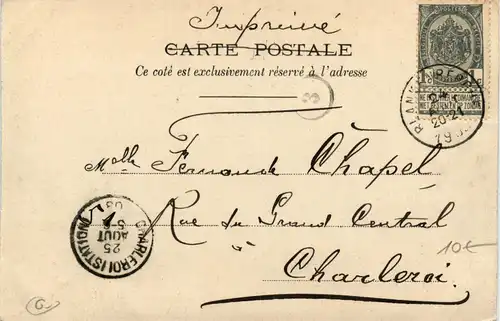 Imprimé
CARTE POSTALE
Ce côté est exclusivement réservé à l'adresse
1 1
BLANKENBERGHE
20-21
S
Melle Fernande Chapel
Rue du Grand Central
Charleroi
CHARLEROI (STATION)
25
AOUT
10€
G